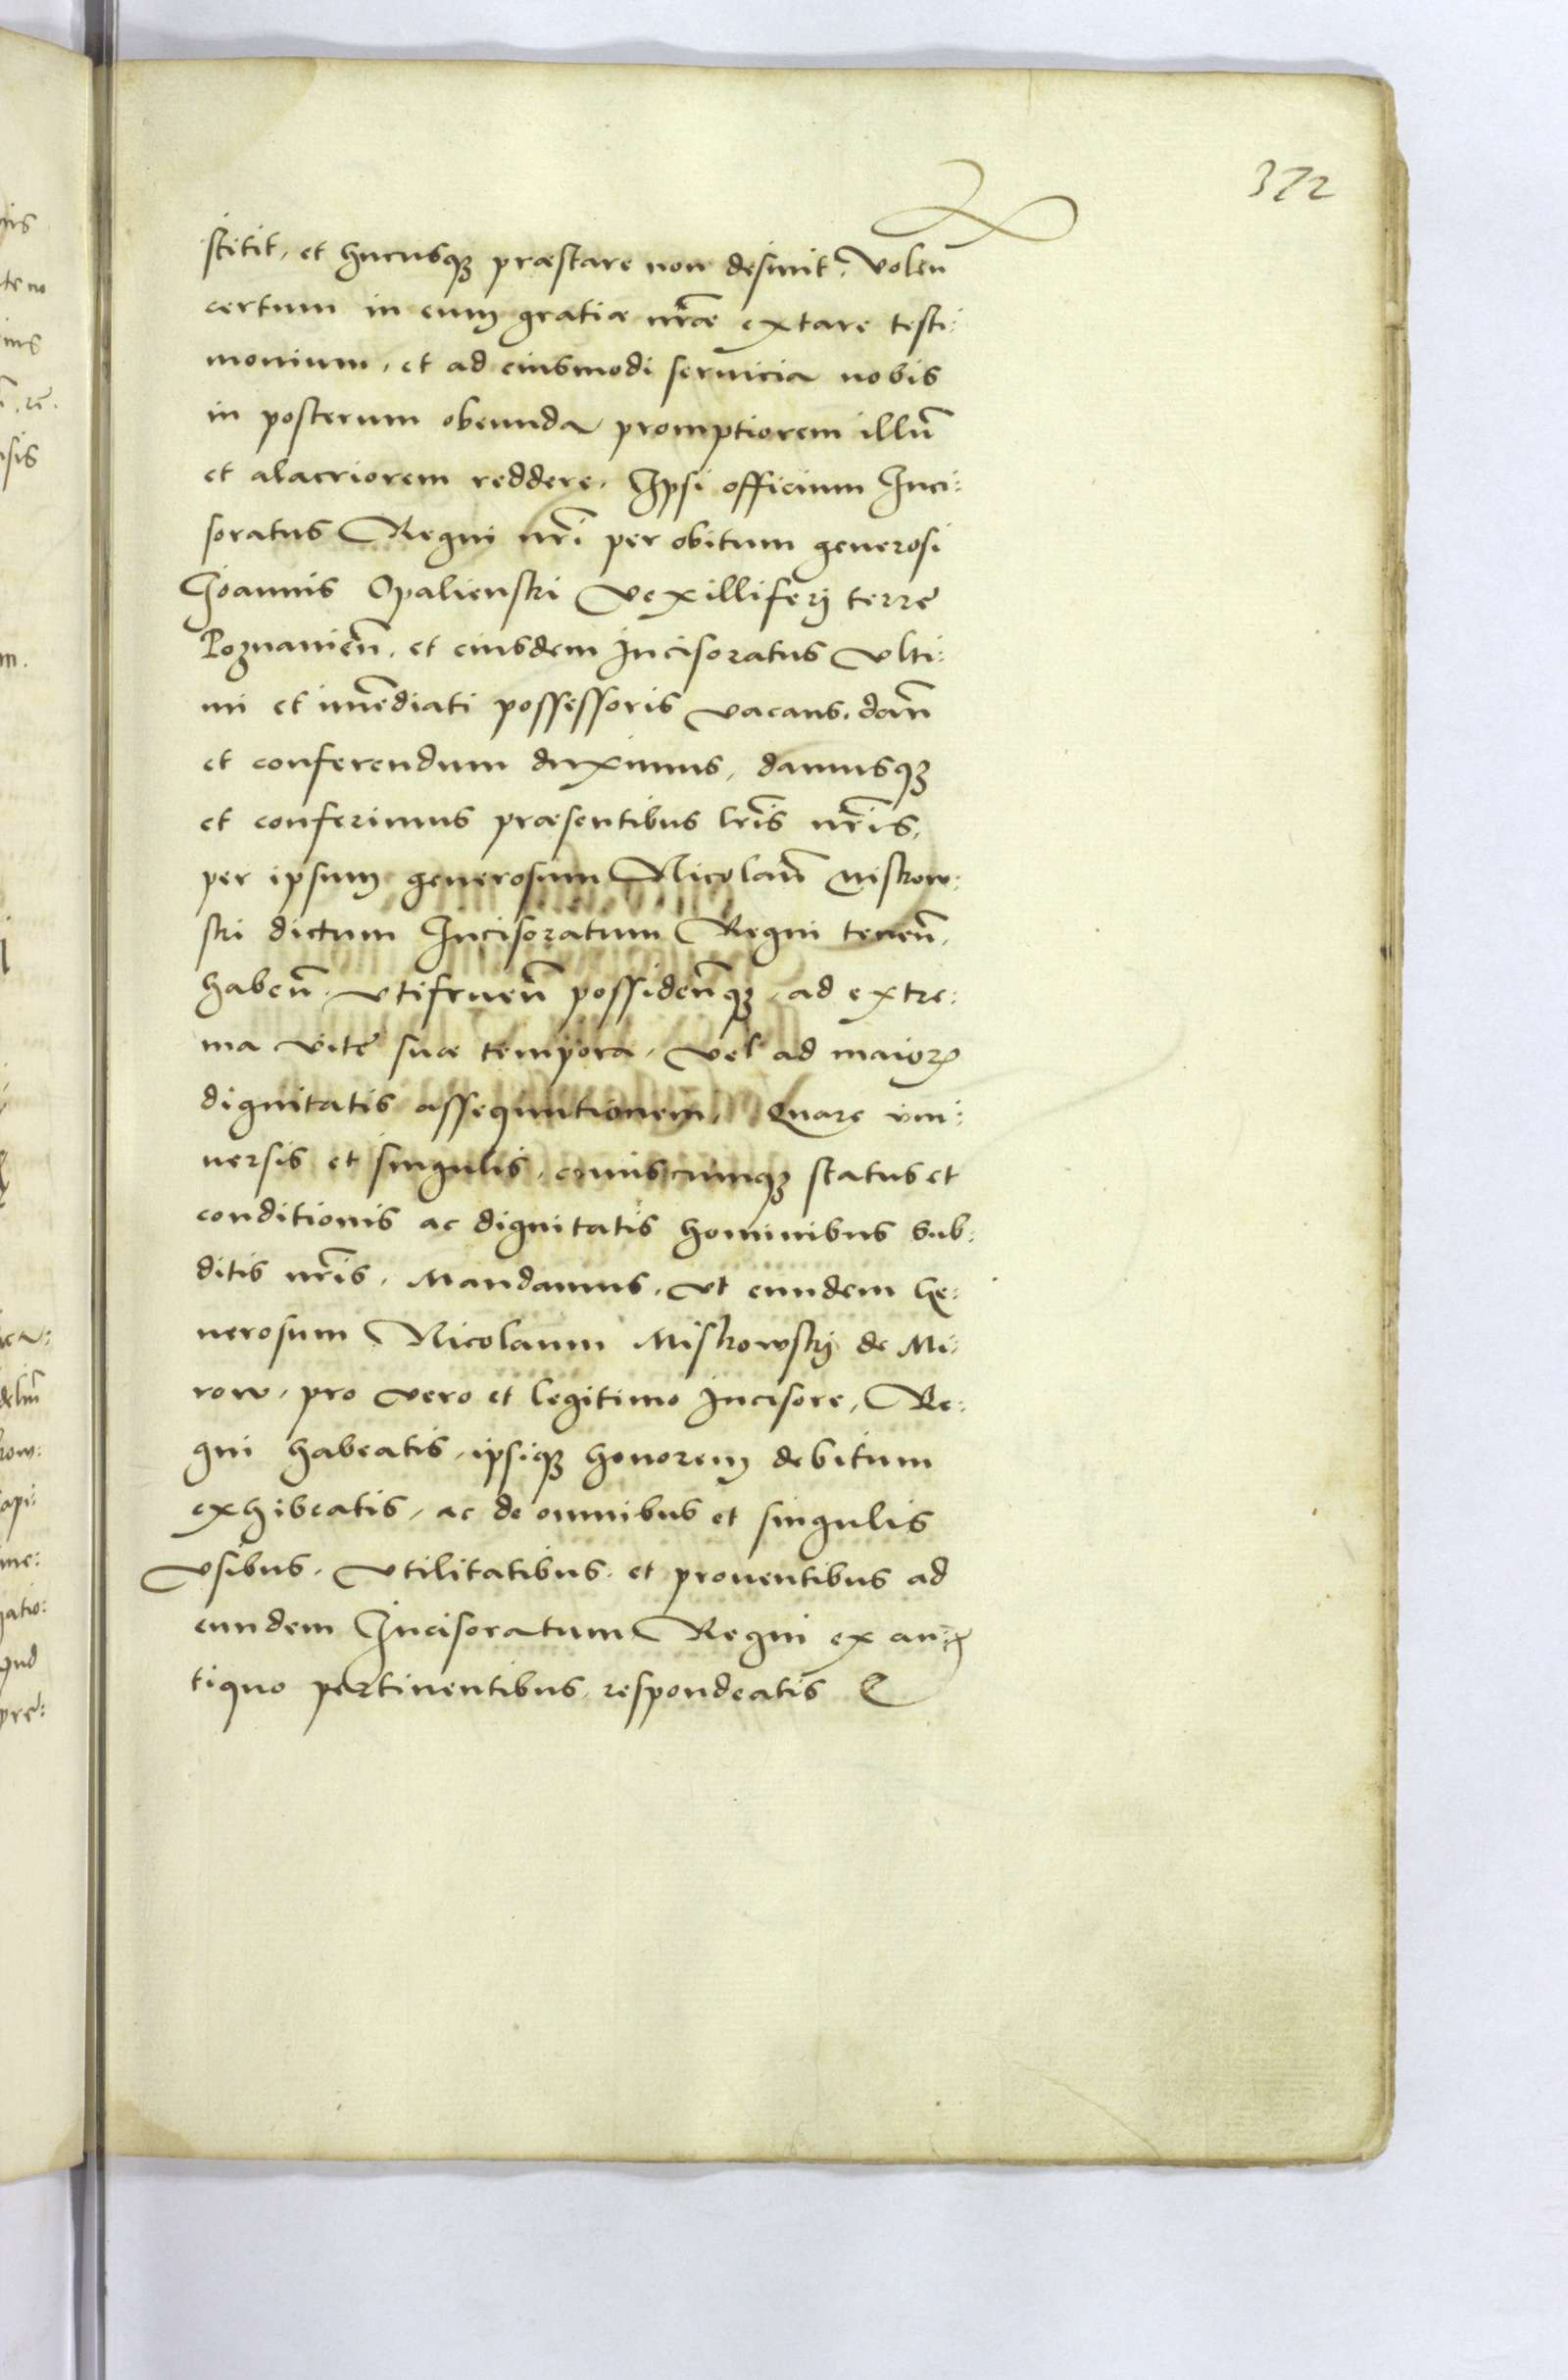 372
stitit, et hucusqꝫ præstare non desinit. Volen̄
certum in eum gratiæ nr̄æ extare testi:
monium, et ad eiusmodi seruicia nobis
in posterum obeunda promptiorem illū
et alacriorem reddere. Ipsi officium Inci:
soratus Regni nr̄i per obitum generosi
Joannis Opalienski Vexilliferi terrę
Poznanien̄. et eiusdem Incisoratus vlti:
mi et im̄ediati possessoris vacans, dan̄
et conferendum duximus, damusqꝫ
et conferimus præsentibus lr̄is nr̄is,
per ipsum generosum Nicolaū Miskow:
ski dictum Incisoratum Regni tenen̄,
haben̄. vtifruen̄ possiden̄qꝫ, ad extre:
ma vitę suæ tempora, vel ad maioris
dignitatis assequutionem. Quare vni:
uersis et singulis, cuiuscumqꝫ status et
conditionis ac dignitatis hominibus sub:
ditis nr̄is. Mandamus, vt eundem Ge:
nerosum Nicolaum Miskowski de Mi:
row, pro vero et legitimo Incisore, Re:
gni habeatis, ipsiqꝫ honorem debitum
exhibeatis, ac de omnibus et singulis
vsibus, vtilitatibus, et prouentibus ad
eundem Incisoratum Regni ex an:
tiquo pertinentibus, respondeatis